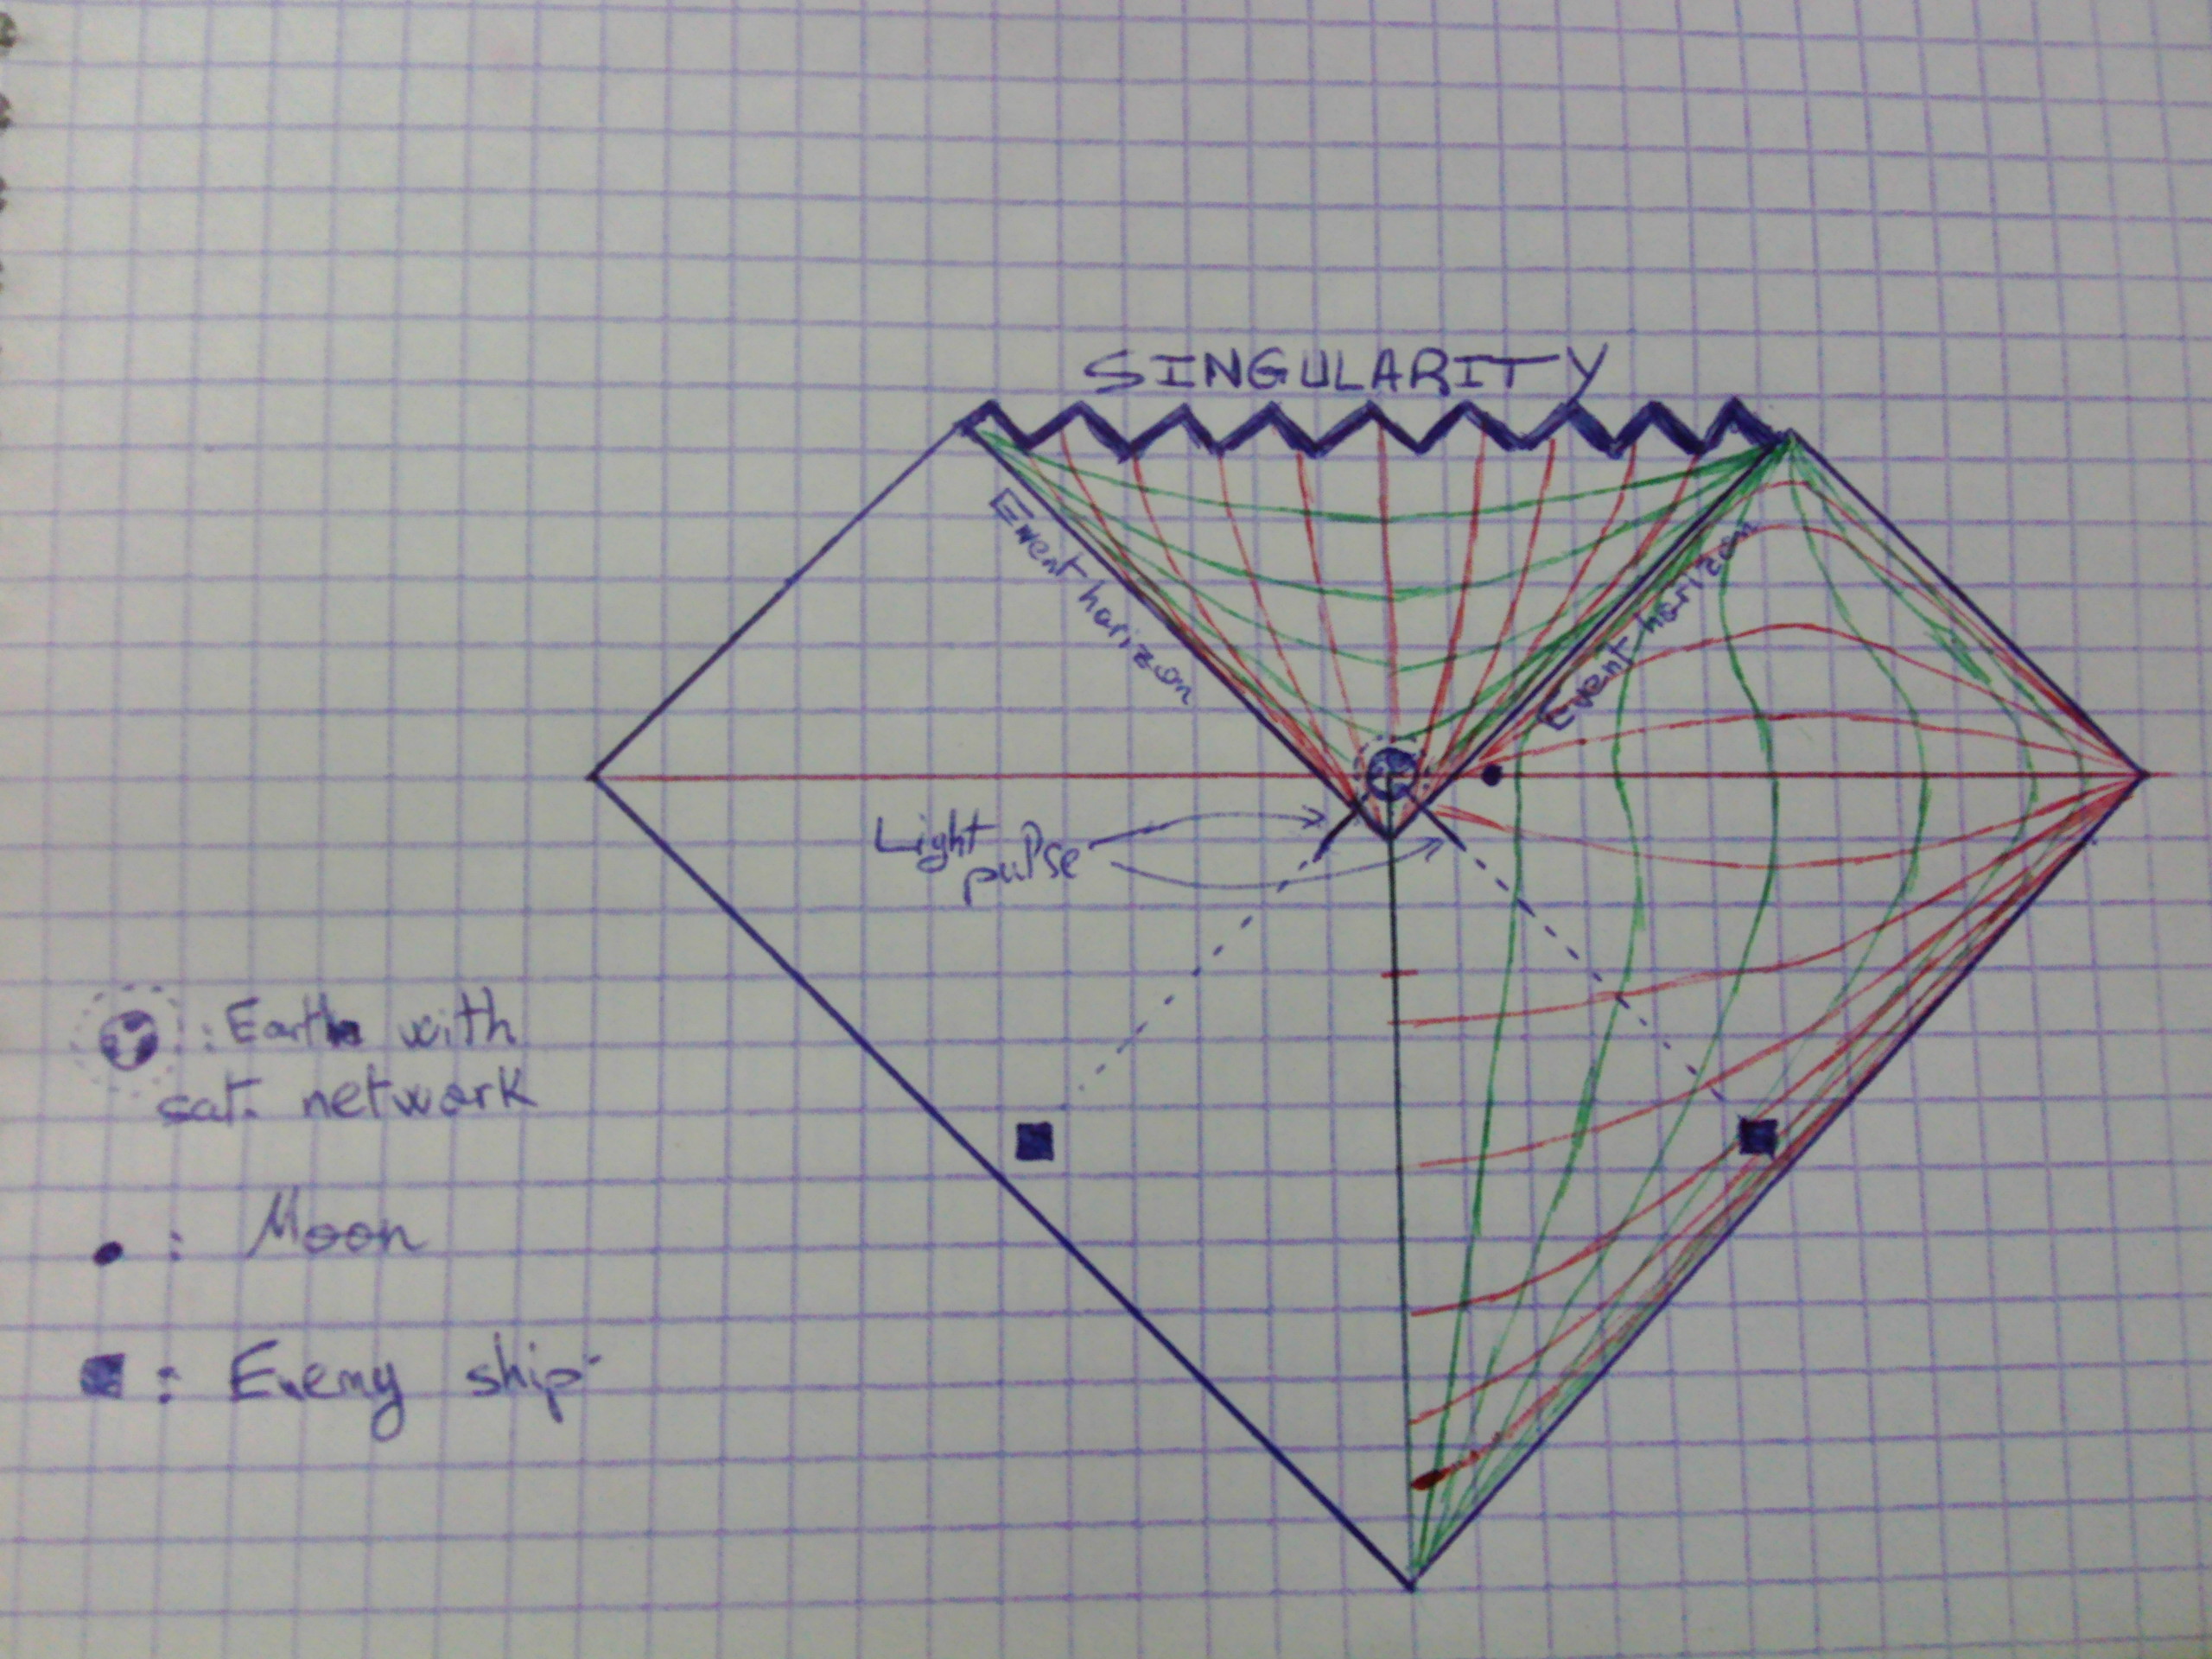 SINGULARITY
Event horizon
Event horizon
Light
pulse
: Earth with
sat. network
: Moon
: Enemy ship